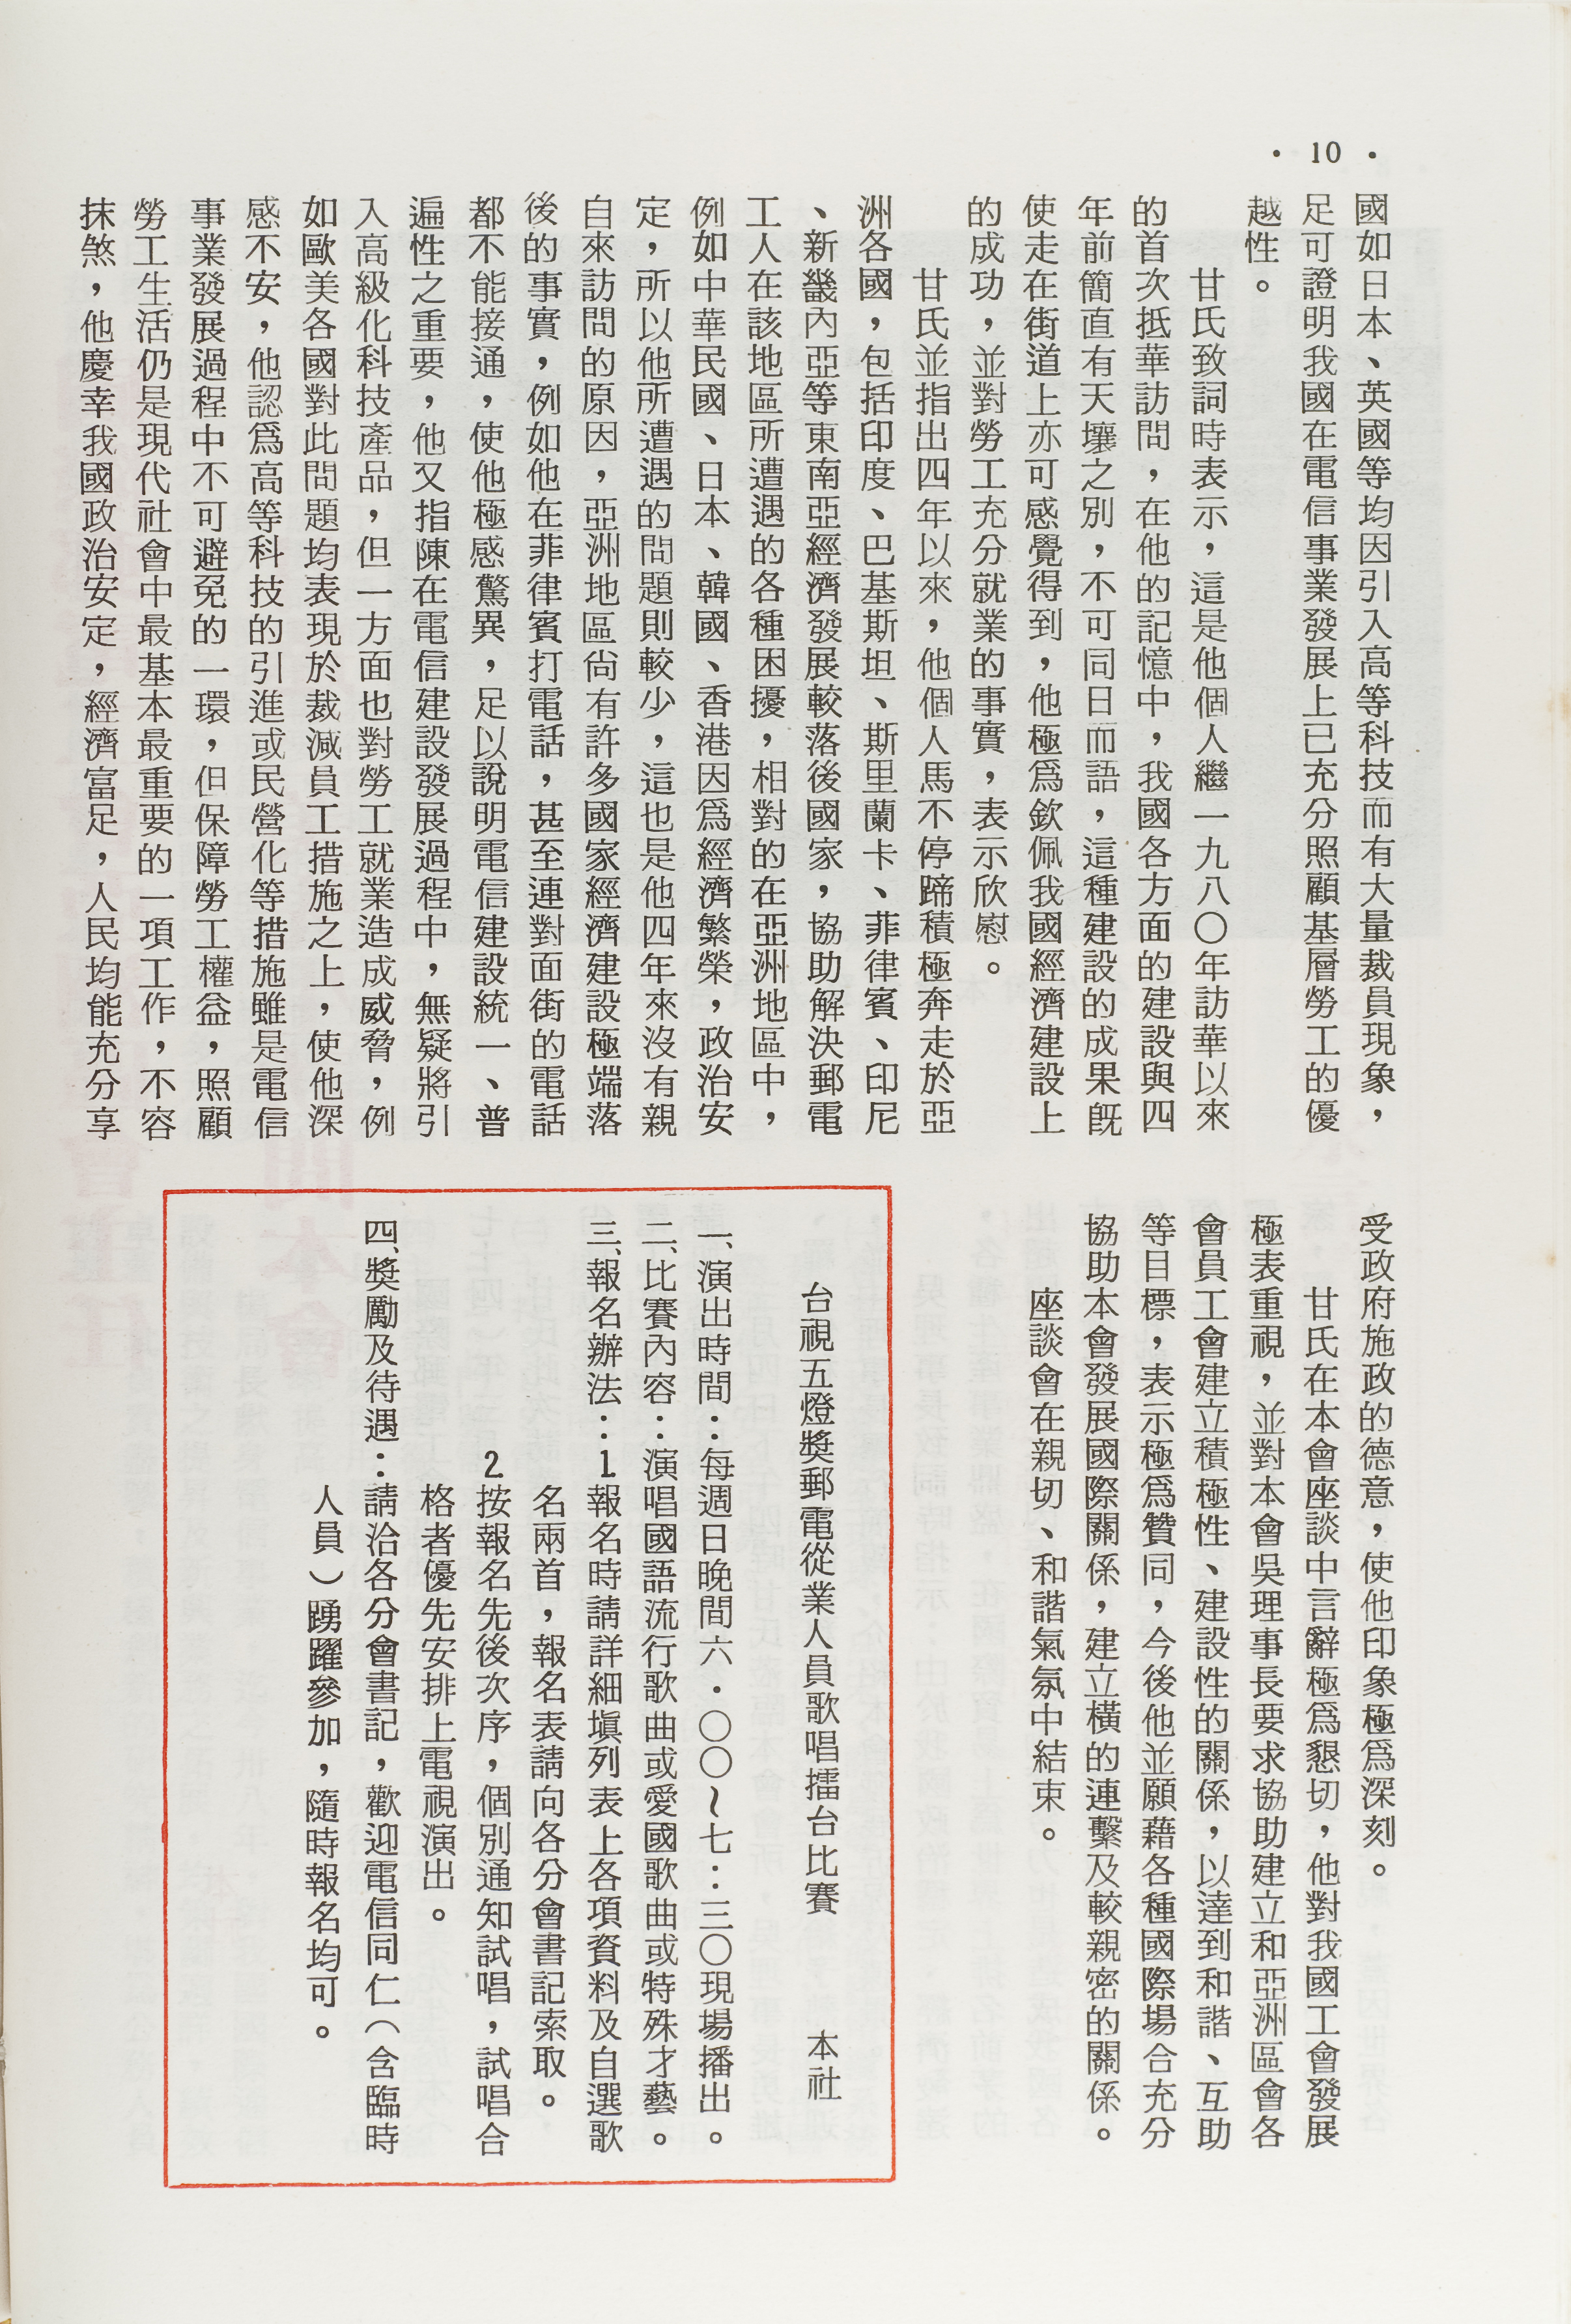 · 10 ·
國如日本、英國等均因引入高等科技而有大量裁員現象，
足可證明我國在電信事業發展上已充分照顧基層勞工的優
越性。
甘氏致詞時表示，這是他個人繼一九八〇年訪華以來
的首次抵華訪問，在他的記憶中，我國各方面的建設與四
年前簡直有天壤之別，不可同日而語，這種建設的成果既
使走在街道上亦可感覺得到，他極爲欽佩我國經濟建設上
的成功，並對勞工充分就業的事實，表示欣慰。
甘氏並指出四年以來，他個人馬不停蹄積極奔走於亞
洲各國，包括印度、巴基斯坦、斯里蘭卡、菲律賓、印尼
、新畿內亞等東南亞經濟發展較落後國家，協助解決郵電
工人在該地區所遭遇的各種困擾，相對的在亞洲地區中，
例如中華民國、日本、韓國、香港因爲經濟繁榮，政治安
定，所以他所遭遇的問題則較少，這也是他四年來沒有親
自來訪問的原因，亞洲地區尙有許多國家經濟建設極端落
後的事實，例如他在菲律賓打電話，甚至連對面街的電話
都不能接通，使他極感驚異，足以說明電信建設統一、普
遍性之重要，他又指陳在電信建設發展過程中，無疑將引
入高級化科技產品，但一方面也對勞工就業造成威脅，例
如歐美各國對此問題均表現於裁減員工措施之上，使他深
感不安，他認爲高等科技的引進或民營化等措施雖是電信
事業發展過程中不可避免的一環，但保障勞工權益，照顧
勞工生活仍是現代社會中最基本最重要的一項工作，不容
抹煞，他慶幸我國政治安定，經濟富足，人民均能充分享
受政府施政的德意，使他印象極爲深刻。
甘氏在本會座談中言辭極爲懇切，他對我國工會發展
極表重視，並對本會吳理事長要求協助建立和亞洲區會各
會員工會建立積極性、建設性的關係，以達到和諧、互助
等目標，表示極爲贊同，今後他並願藉各種國際場合充分
協助本會發展國際關係，建立橫的連繫及較親密的關係。
座談會在親切、和諧氣氛中結束。
台視五燈獎郵電從業人員歌唱擂台比賽　本社
一、演出時間：每週日晚間六·〇〇～七：三〇現場播出。
二、比賽內容：演唱國語流行歌曲或愛國歌曲或特殊才藝。
三、報名辦法：1報名時請詳細塡列表上各項資料及自選歌
名兩首，報名表請向各分會書記索取。
2按報名先後次序，個別通知試唱，試唱合
格者優先安排上電視演出。
四、獎勵及待遇：請洽各分會書記，歡迎電信同仁（含臨時
人員）踴躍參加，隨時報名均可。